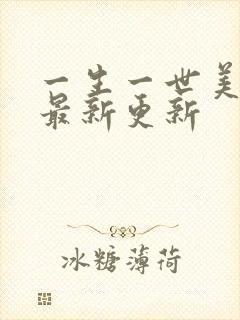 一生一世美
最新更新
冰糖薄荷